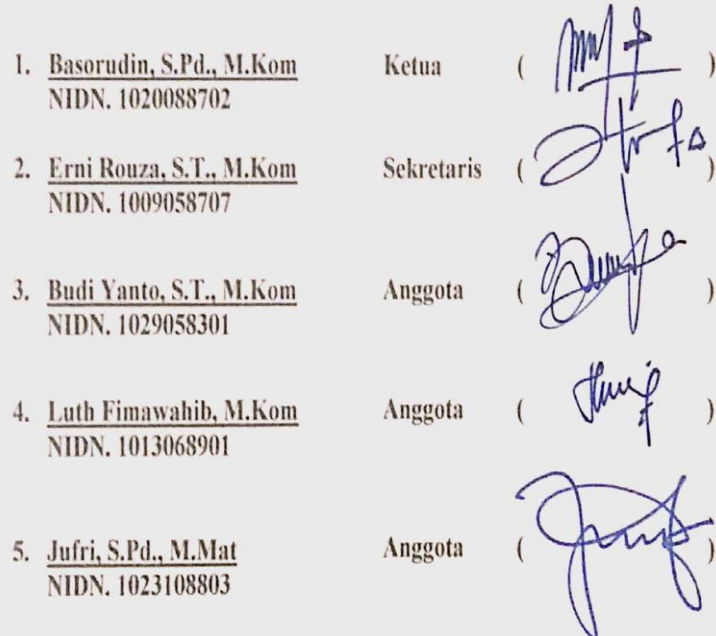 1. Basorudin, S.Pd., M.Kom Ketua ( )
NIDN. 1020088702
2. Erni Rouza, S.T., M.Kom Sekretaris ( )
NIDN. 1009058707
3. Budi Yanto, S.T., M.Kom Anggota ( )
NIDN. 1029058301
4. Luth Fimawahib, M.Kom Anggota ( )
NIDN. 1013068901
5. Jufri, S.Pd., M.Mat Anggota ( )
NIDN. 1023108803